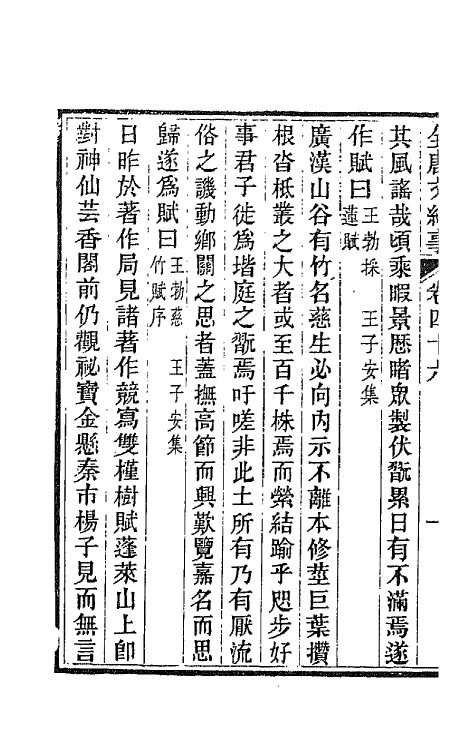 全唐文紀事 卷四十六 一
其風謠哉頃乘暇景歷睹眾製伏翫累日有不滿焉遂
作賦曰 王勃採蓮賦 王子安集
廣漢山谷有竹名慈生必向內示不離本修莖巨葉攢
根沓柢叢之大者或至百千株焉而縈結踰乎咫步好
事君子徒為堦庭之翫焉吁嗟非此土所有乃有厭流
俗之譏動鄉關之思者蓋撫高節而興歎覽嘉名而思
歸遂為賦曰 王勃慈竹賦序 王子安集
日昨於著作局見諸著作競寫雙槿樹賦蓬萊山上卽
對神仙芸香閣前仍觀祕寶金懸秦市楊子見而無言